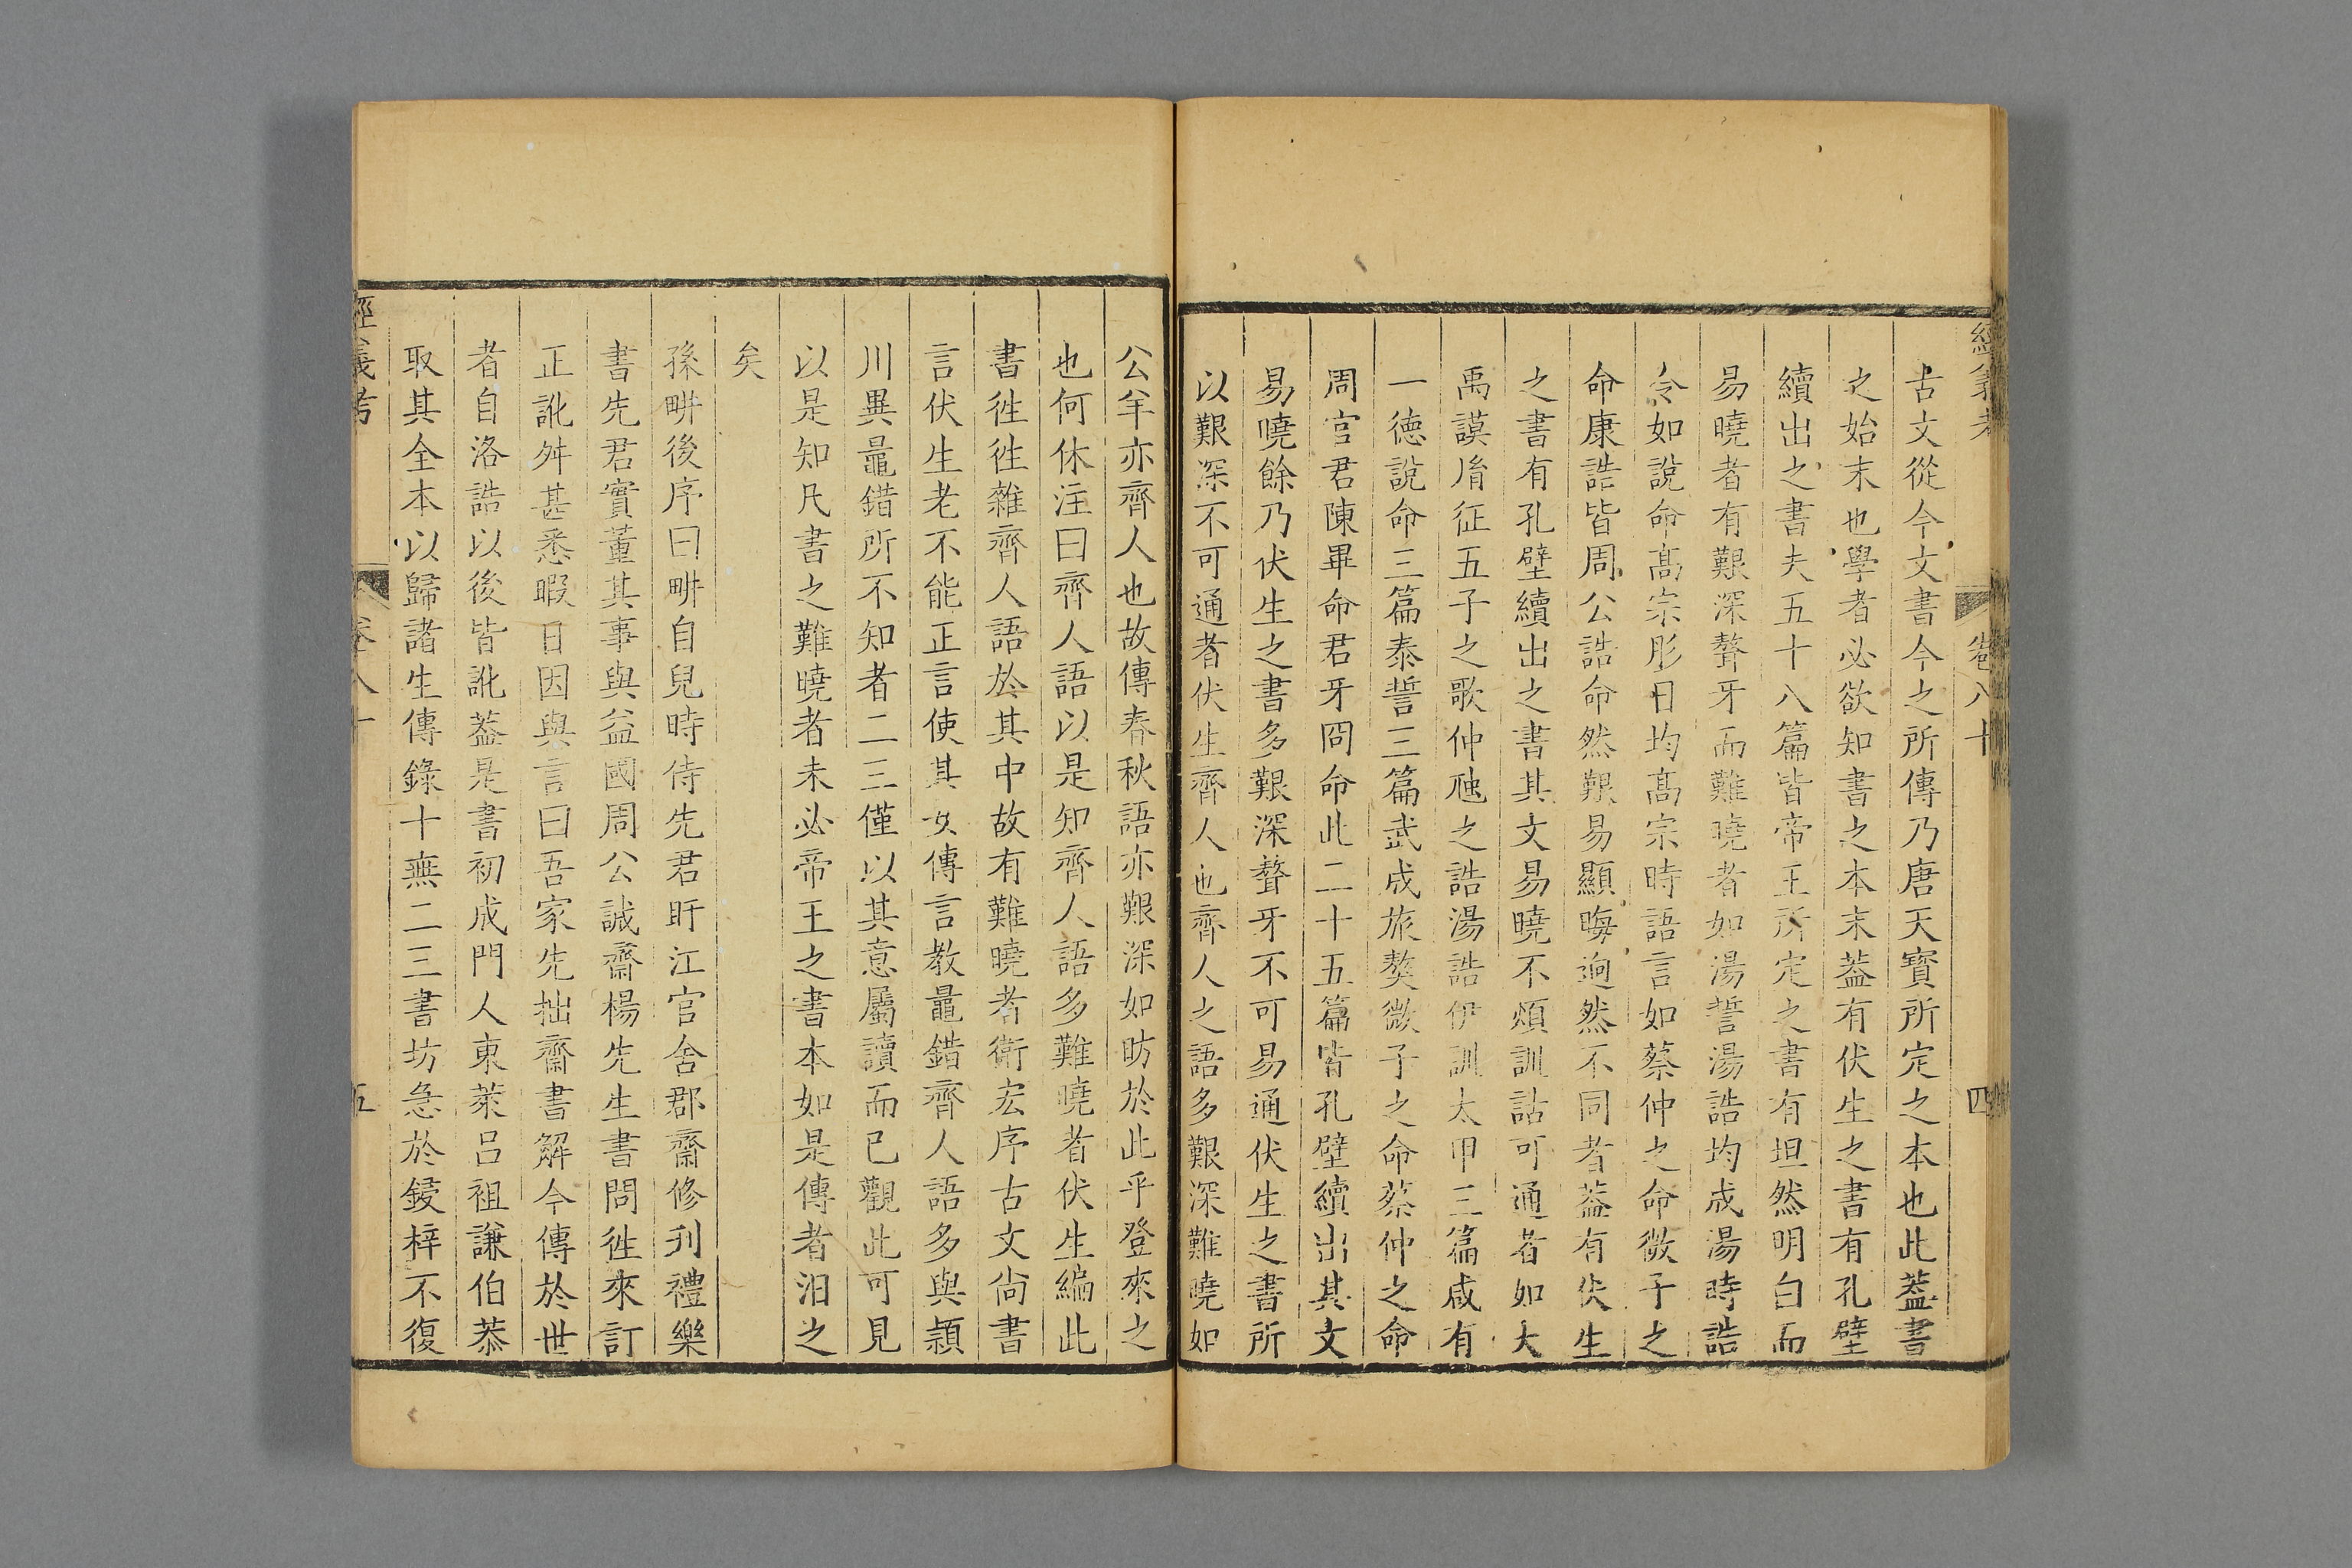 經義考
卷八十
四
古文從今文書今之所傳乃唐天寶所定之本也此葢書
之始末也學者必欲知書之本末葢有伏生之書有孔壁
續出之書夫五十八篇皆帝王所定之書有坦然明白而
易曉者有艱深聱牙而難曉者如湯誓湯誥均成湯時誥
令如說命高宗肜日均高宗時語言如蔡仲之命微子之
命康誥皆周公誥命然艱易顯晦迥然不同者葢有伏生
之書有孔壁續出之書其文易曉不煩訓詁可通者如大
禹謨胤征五子之歌仲虺之誥湯誥伊訓太甲三篇咸有
一德說命三篇泰誓三篇武成旅獒微子之命蔡仲之命
周官君陳畢命君牙冏命此二十五篇皆孔壁續出其文
易曉餘乃伏生之書多艱深聱牙不可易通伏生之書所
以艱深不可通者伏生齊人也齊人之語多艱深難曉如
公羊亦齊人也故傳春秋語亦艱深如昉於此乎登來之
也何休注曰齊人語以是知齊人語多難曉者伏生編此
書徃徃雜齊人語於其中故有難曉者衛宏序古文尚書
言伏生老不能正言使其女傳言教鼂錯齊人語多與潁
川異鼂錯所不知者二三僅以其意屬讀而已觀此可見
以是知凡書之難曉者未必帝王之書本如是傳者汨之
矣
孫畊後序曰畊自兒時侍先君盱江官舍郡齋修刊禮樂
書先君實董其事與益國周公誠齋楊先生書問徃來訂
正訛舛甚悉暇日因與言曰吾家先拙齋書解今傳於世
者自洛誥以後皆訛葢是書初成門人東萊呂祖謙伯恭
取其全本以歸諸生傳錄十無二三書坊急於鋟梓不復
經義考
卷八十
五